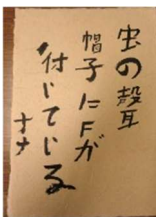 虫の殻耳
帽子にFが
付いている
ナナ